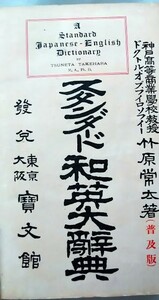 A
Standard
Japanese-English
Dictionary
BY
TSUNETA TAKEHARA
神戸高等商業學校教授
ドクトル・オブ・フィロソフィー
竹原常太著
(普及版)
スタンダード和英大辭典
發兌
東京
大阪
寶文館